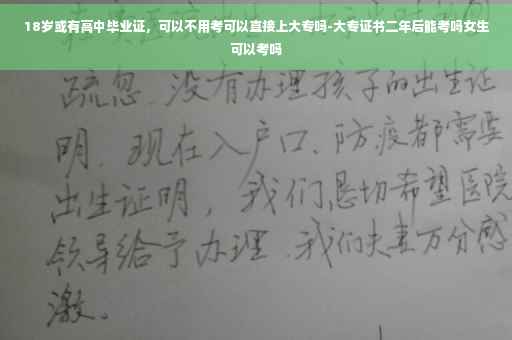 18岁或有高中毕业证，可以不用考可以直接上大专吗-大专证书二年后能考吗女生
可以考吗
疏忽.没有办理孩子的出生证
明.现在入户口、防疫都需要
出生证明，我们恳切希望医院
领导给予办理.我们夫妻万分感
激。